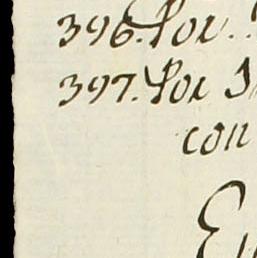 396. Por
397. Por
con